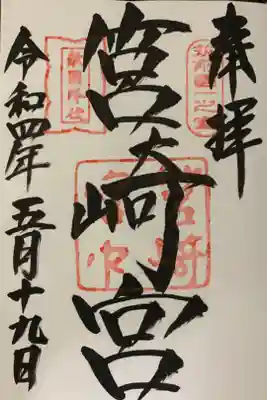 奉拝
筑前國一之宮
筥崎宮
敵國降伏
令和四年五月十九日